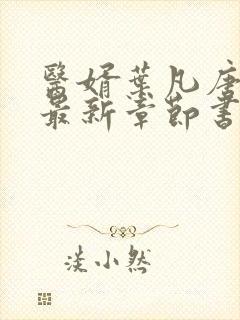 醫婿葉凡唐
最新章節書
淡小然